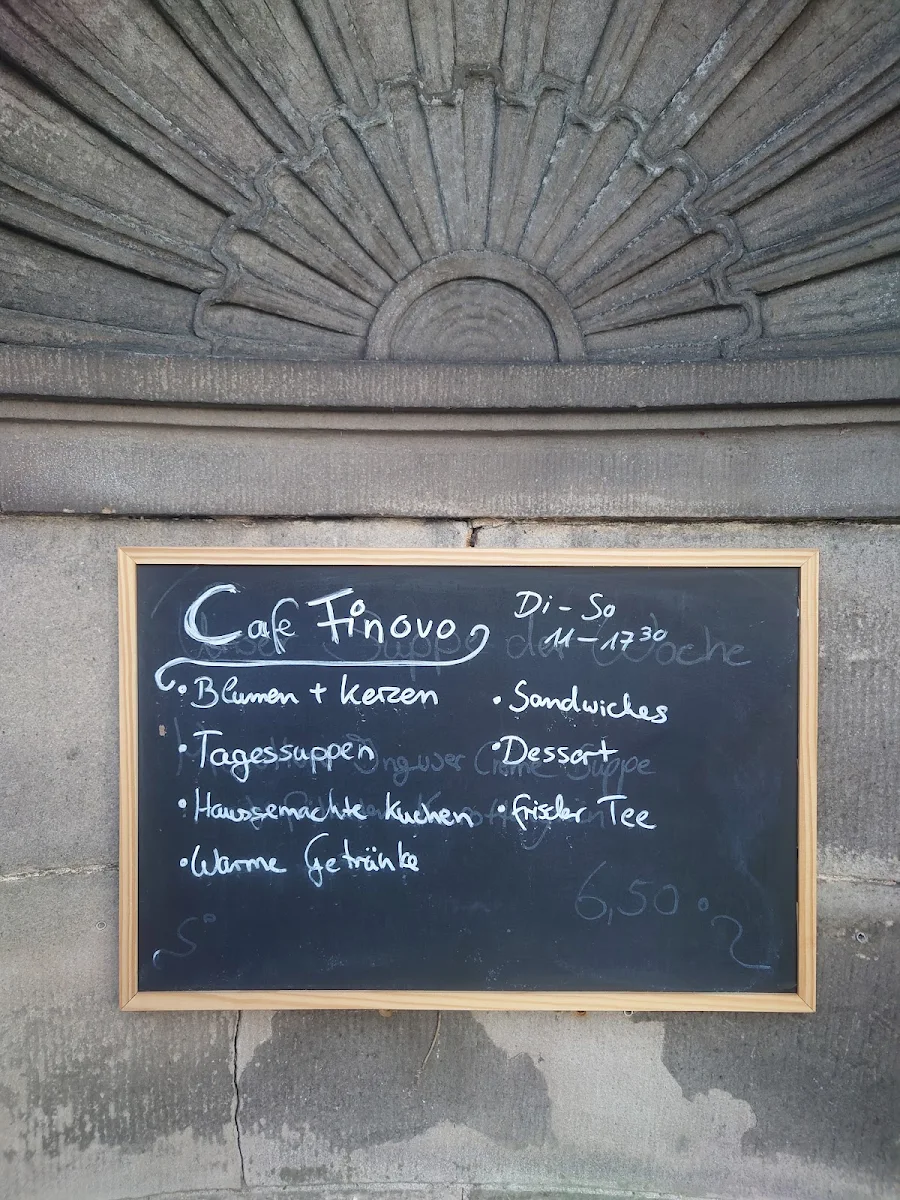 Cafe Finovo
Di - So
11 - 17 30
• Blumen + Kerzen
• Tagessuppen
• Hausgemachte Kuchen
• Warme Getränke
• Sandwiches
• Dessert
• frischer Tee
Unser Suppe der Woche
Ingwer Creme Suppe
6,50